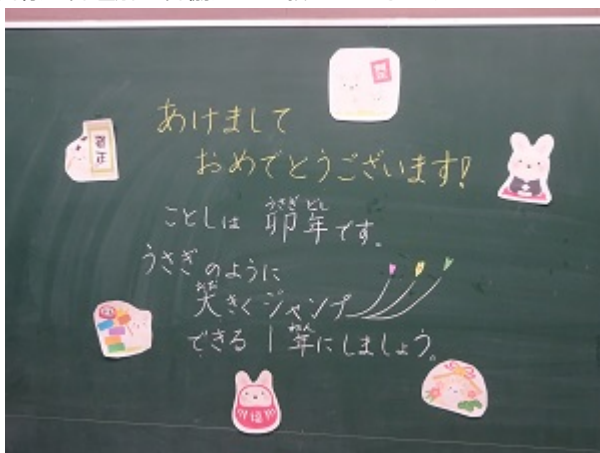 あけまして
おめでとうございます!
ことしは 卯年です。
うさぎ どし
うさぎのように
大きくジャンプ
おお
できる1年にしましょう。
ねん